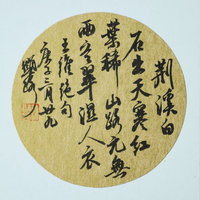 荆溪白
石出天寒红
葉稀山路元無
雨空翠濕人衣
王维绝句
庚子三月廿九